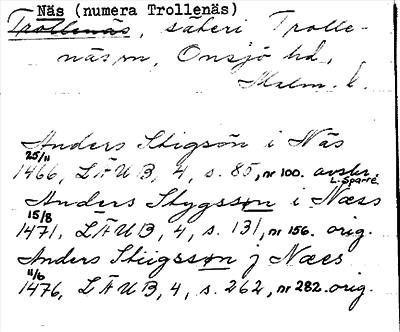 Näs (numera Trollenäs)
Trollenäs, säteri Trolle-
näs sn, Onsjö hd,
Malm. l.
Anders Stigsön i Näs
25/11
1466, LÄUB, 4, s. 85, nr 100. avskr.
L. Sparre
Anders Stygsson i Næss
15/8
1471, LÄUB, 4, s. 131, nr 156. orig.
Anders Stiigsson j Næs
11/6
1476, LÄUB, 4, s. 262, nr 282. orig.